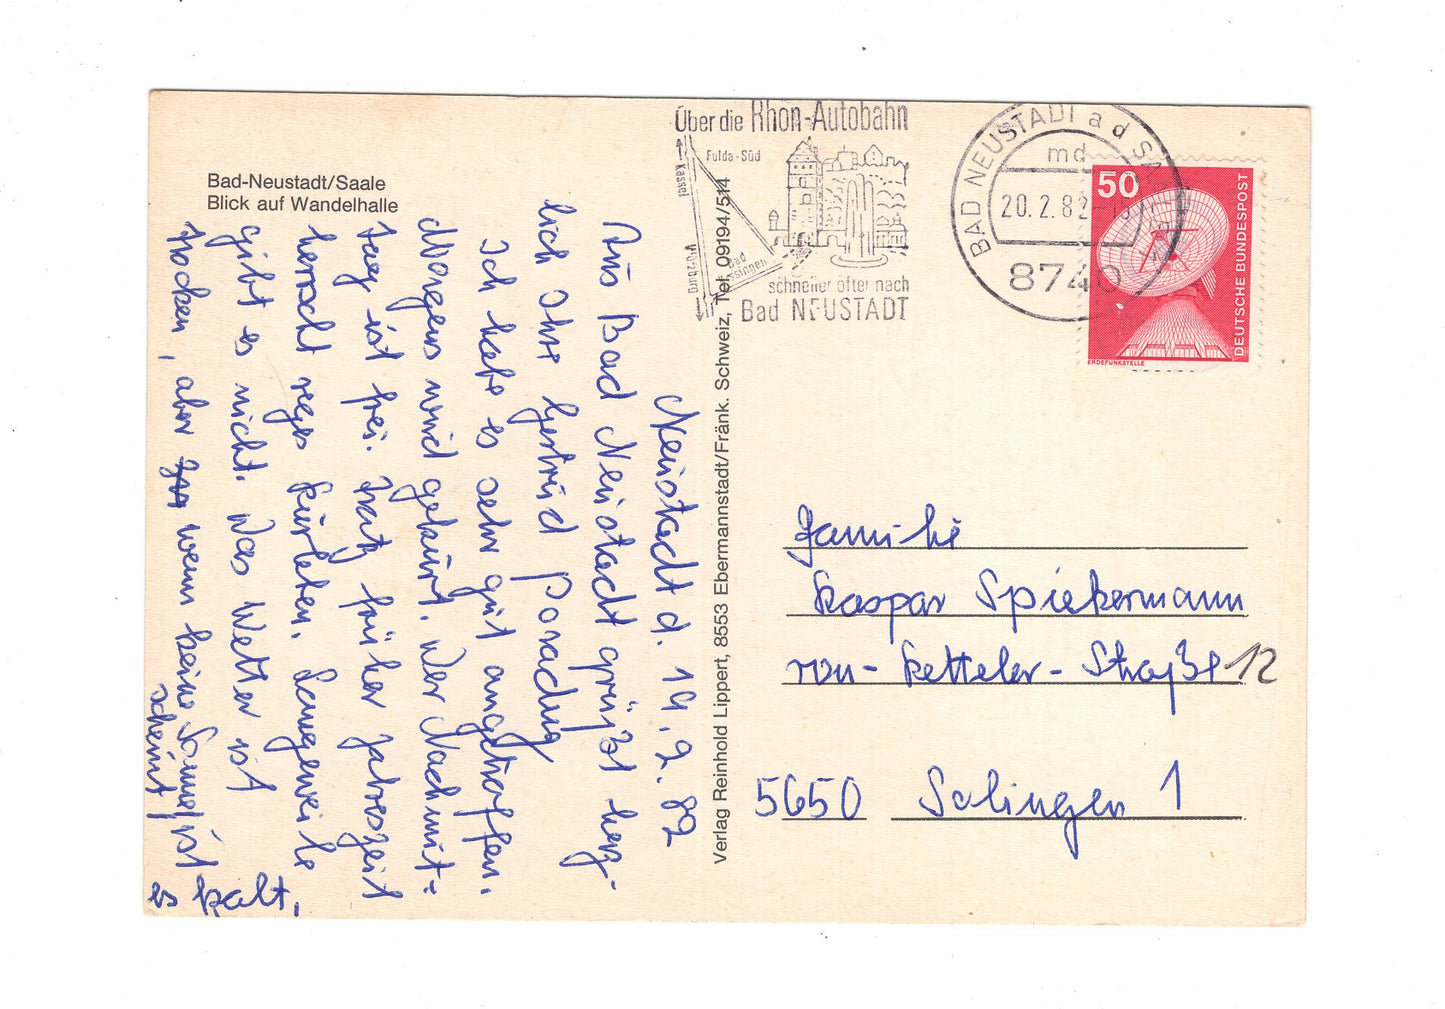 Bad-Neustadt/Saale
Blick auf Wandelhalle
Neustadt d. 19.2.82
Aus Bad Neustadt grüßt herz-
lich Ihre Gertrud
Ich habe es sehr gut angetroffen.
Morgens wird gekurt. Der Nachmit-
tag ist frei. Trotz früher Jahreszeit
herrscht reges Kurleben. Langeweile
gibt es nicht. Das Wetter ist
trocken, aber wenn keine Sonne
scheint, ist
es kalt.
Verlag Reinhold Lippert, 8553 Ebermannstadt/Fränk. Schweiz, Tel. 09194/514
Über die Rhön-Autobahn
Fulda-Süd
Kassel
Würzburg
Bad
Kissingen
schneller öfter nach
Bad NEUSTADT
BAD NEUSTADT a d SAALE
md
20.2.82
8740
50
DEUTSCHE BUNDESPOST
ERDEFUNKSTELLE
Familie
Kaspar Spiekermann
von-Ketteler-Straße 12
5650 Solingen 1